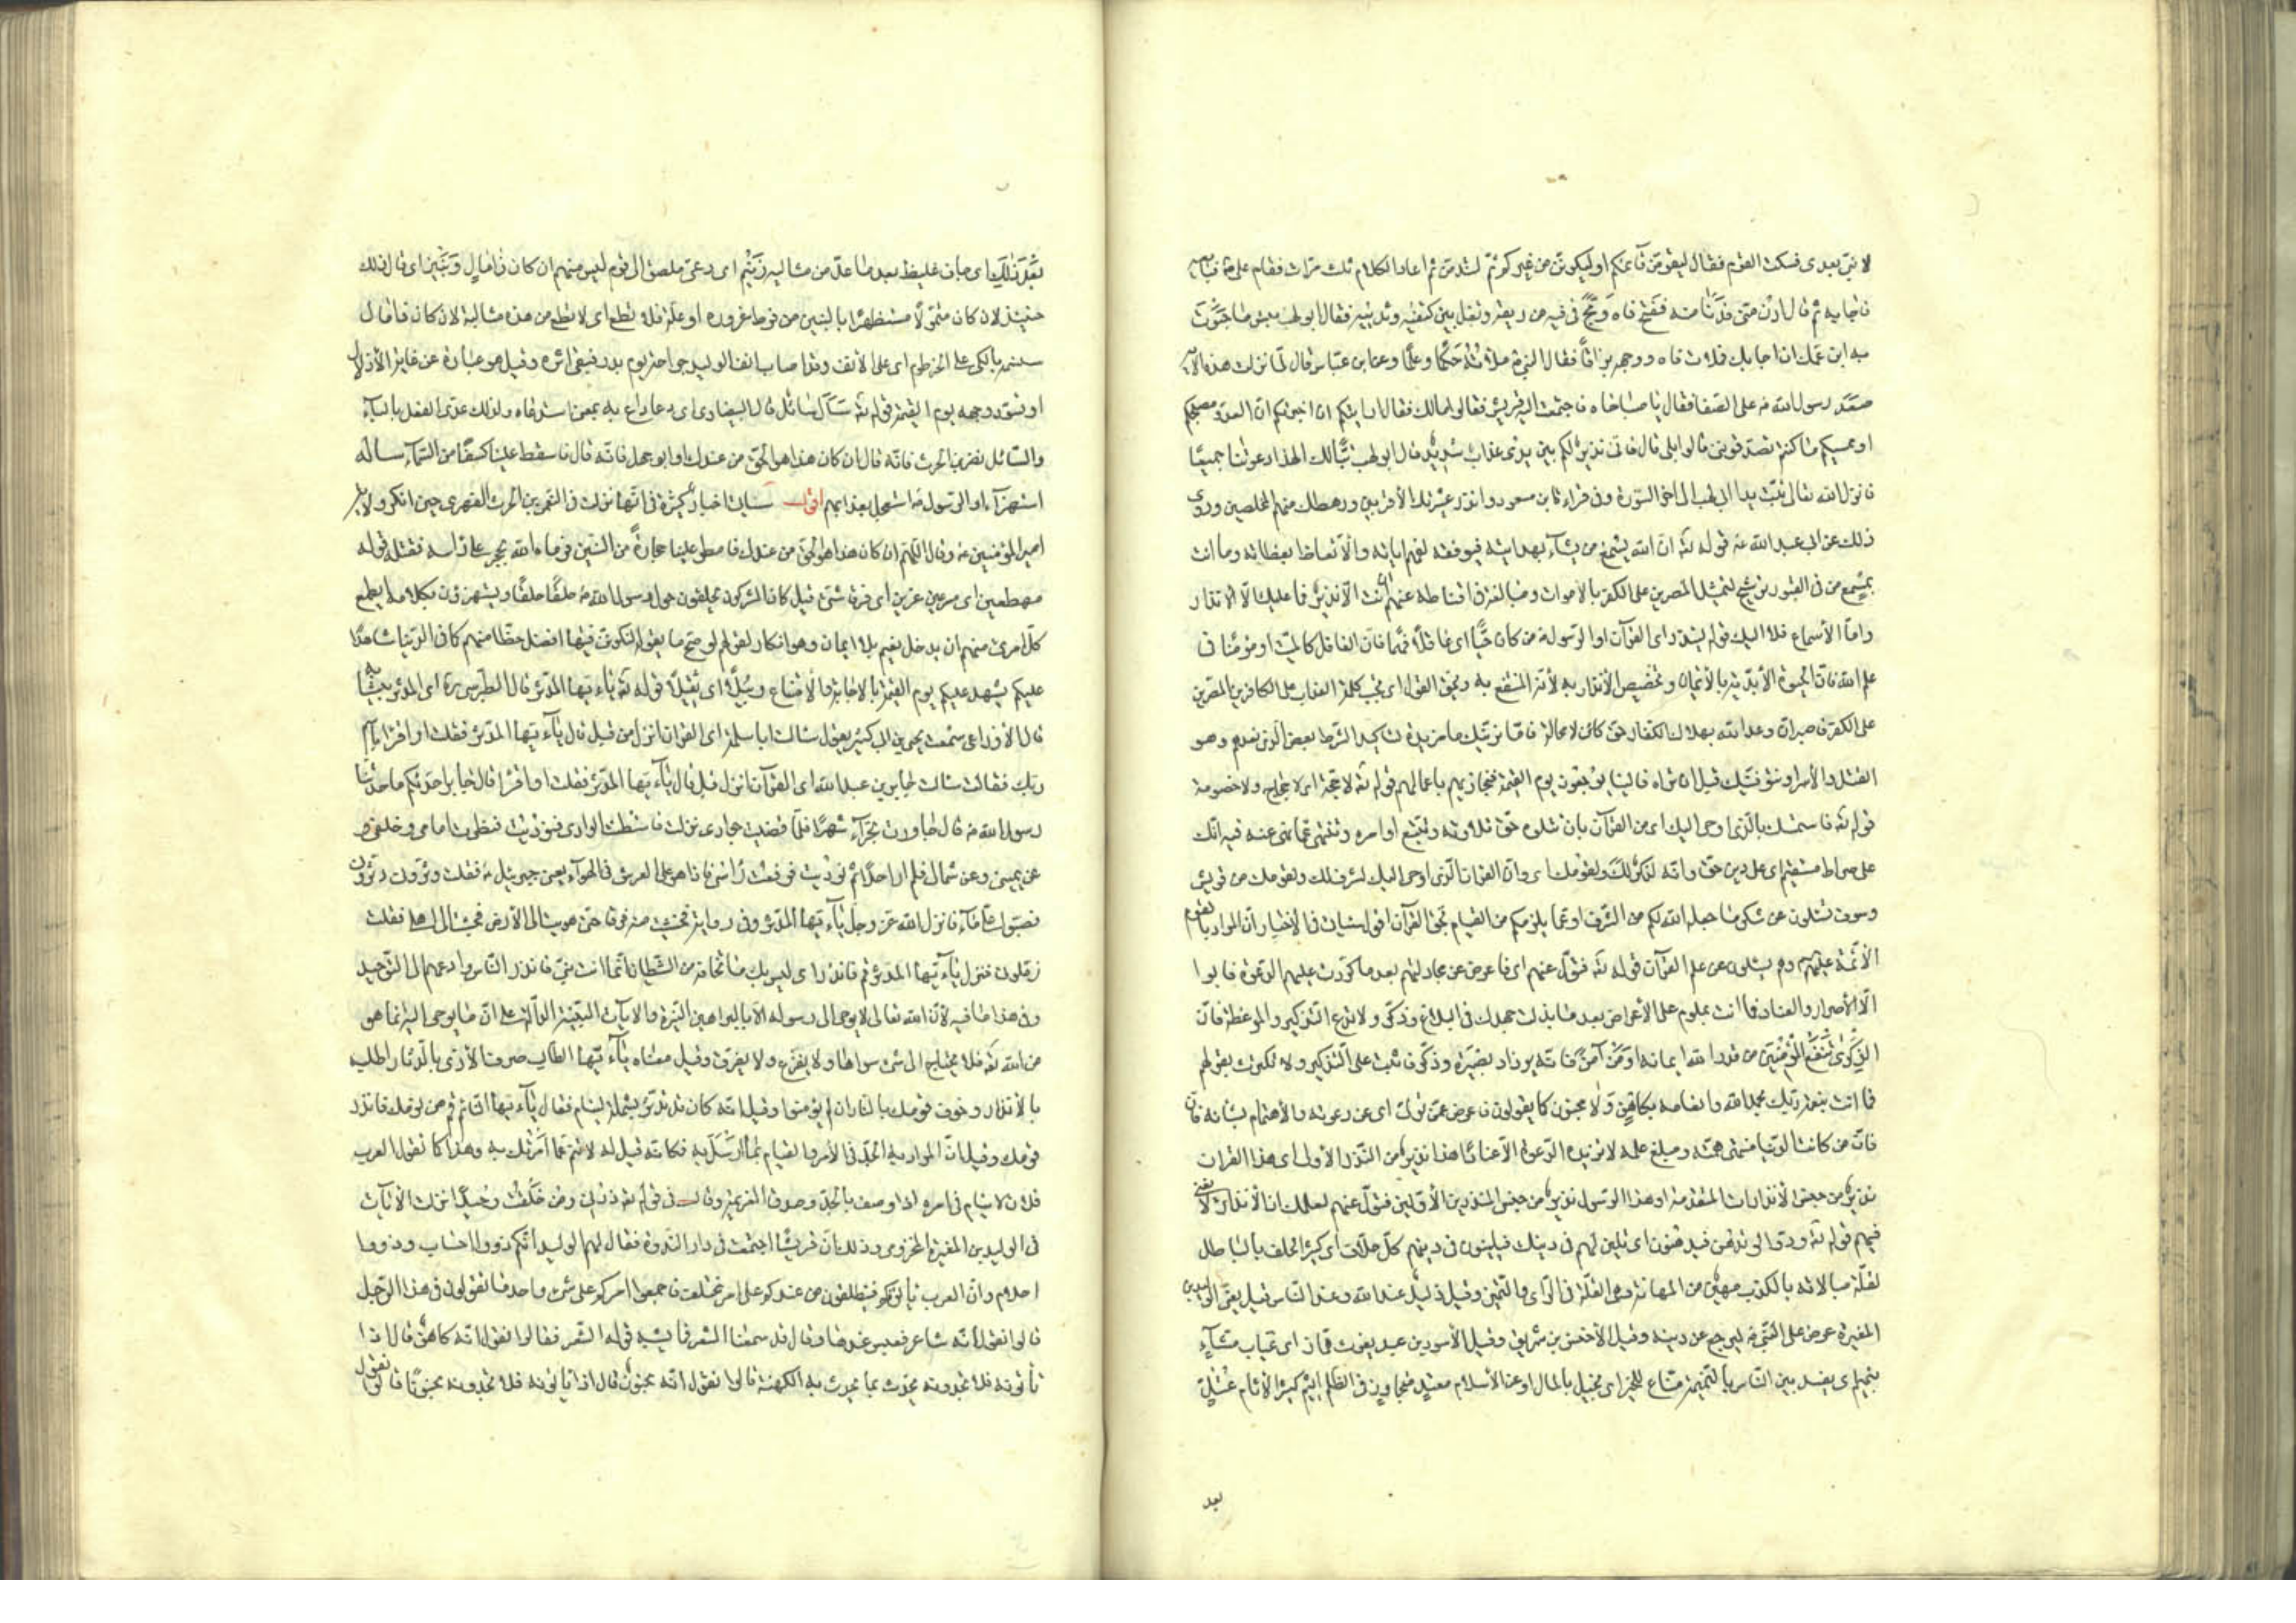 لا نبيّ بعدى فسكت القوم فقال ليقومنّ قائمكم او ليكوننّ من غيركم ثمّ لتندمنّ ثم اعاد الكلام ثلث مرّات فقام علىّ ع فبايعه
فاجابه ثم قال ادن منّى فدنا منه ففتح فاه ومجّ فى فيه من ريقه وتفل بين كتفيه وثدييه فقال ابو لهب بئس ما حبوت
به ابن عمّك ان اجابك فملات فاه ووجهه بزاقا فقال النبىّ ص ملاته حكما وعلما وعن ابن عبّاس قال لمّا نزلت هذه الآية
صعد رسول الله ص على الصّفا فقال يا صباحاه فاجتمعت اليه قريش فقالوا مالك فقال ارايتكم ان اخبرتكم انّ العدوّ مصبحكم
او ممسيكم ما كنتم تصدّقوننى قالوا بلى قال فانّى نذير لكم بين يدى عذاب شديد قال ابو لهب تبّا لك الهذا دعوتنا جميعا
فانزل الله تعالى تبّت يدا ابى لهب الى اخر السّورة وفى قراءة ابن مسعود وانذر عشيرتك الأقربين ورهطك منهم المخلصين وروى
ذلك عن ابى عبد الله ع قوله تع انّ الله يسمع من يشآء بهدايته فيوفقه لفهم اياته والاتّعاظ بعظاته وما انت
بمسمع من فى القبور ترشيح لتمثيل المصرّين على الكفر بالأموات ومبالغة فى اقناطه عنهم ان انت الّا نذير فما عليك الّا الانذار
وامّا الأسماع فلا اليك قوله لينذر اى القرآن او الرّسول ص من كان حيّا اى عاقلا فهما فانّ الغافل كالميّت او مؤمنا فى
علم الله فانّ الحيوة الأبديّة بالأيمان وتخصيص الأنذار به لأنّه المنتفع به ويحقّ القول اى تجب كلمة العذاب على الكافرين المصرّين
على الكفر فاصبر انّ وعد الله بهلاك الكفّار حقّ كائن لا محالة فامّا نرينّك ما مزيدة لتأكيد الشّرط بعض الّذى نعدهم وهو
القتل والأسر او نتوفّينّك قبل ان تراه فالينا يرجعون يوم القيمة فنجازيهم باعمالهم قوله تع لا حجّة اى لا حجاج ولا خصومة
قوله تع فاستمسك بالّذى اوحى اليك اى من القرآن بان تتلوه حقّ تلاوته وتتّبع اوامره وتنتهى عمّا نهى عنه فيه انّك
على صراط مستقيم اى على دين حقّ وانّه لذكر لك ولقومك اى وانّ القرآن الّذى اوحى اليك لشرف لك ولقومك من قريش
وسوف تسئلون عن شكر ما جعله الله لكم من الشّرف او عمّا يلزمكم من القيام بحقّ القرآن اقول سيأت فى الأخبار انّ المراد بالقوم
الأئمّة عليهم وهم يسئلون عن علم القرآن قوله تع فتولّ عنهم اى فاعرض عن مجادلتهم بعد ما كرّرت عليهم الدّعوة فابوا
الّا الأصرار والعناد فما انت بملوم على الأعراض بعد ما بذلت جهدك فى البلاغ وذكّر ولا تدع التّذكير والموعظة فانّ
الذّكرى تنفع المؤمنين من قدّر الله ايمانه او من آمن فانّه يزداد بصيرة وذكّر فاثبت على التّذكير ولا تكترث بقولهم
فما انت بنعمة ربّك بحمد الله وانعامه بكاهن ولا مجنون كما يقولون فاعرض عمّن تولّى اى عن دعوته والأهتمام بشانه فانّ
فانّ من كانت الدّنيا منتهى همّته ومبلغ علمه لا تزيده الدّعوة الّا عنادا هذا نذير من النّذر الأولى اى هذا القرآن
نذير من جنس الأنذارات المتقدّمة او هذا الرّسول نذير من جنس المنذرين الأوّلين فتولّ عنهم لعلمك انّ الأنذار لا يغنى
فيهم قوله تع ودّوا لو تدهن فيدهنون اى تلين لهم فى دينك فيلينون فى دينهم كلّ حلّاف اى كثير الحلف بالباطل
لقلّة مبالاته بالكذب مهين من المهانة وهى القلّة فى الرّأى والتّميز وقيل ذليل عند الله وعند النّاس قيل يعنى الوليد بن
المغيرة عرض على النّبىّ ص ليرجع عن دينه وقيل الأخنس بن شريق وقيل الأسود بن عبد يغوث همّاز اى عيّاب مشّآء
بنميم اى يفسد بين النّاس بالنّميمة منّاع للخير اى بخيل بالمال او عن الأسلام معتد متجاوز فى الظّلم اثيم كثير الأثام عتلّ
بعد
بعد ذلك اى جاف غليظ بعد ما عدّ من مثالبه زنيم اى دعىّ ملصق الى قوم ليس منهم ان كان ذا مال وبنين اى قال ذلك
حينئذ لان كان متموّلا مستظهرا بالبنين من فرط غروره او علّة فلا تطع اى لا تطع من هذه مثالبه لان كان ذا مال
سنسمه بالكىّ على الخرطوم اى على الأنف وقد اصاب انف الوليد جراحة يوم بدر فبقى اثره وقيل هو عبارة عن غاية الأذلال
او نسوّد وجهه يوم القيمة قوله تع سأل سائل قال البيضاوى اى دعا داع به بمعنى استدعاه ولذلك عدّى الفعل بالبآء
والسّائل نضر بن الحرث فانّه قال ان كان هذا هو الحقّ من عندك او ابو جهل فانّه قال فاسقط علينا كسفا من السّمآء سأله
استهزآء او الرّسول ص استعجل بعذابهم اقول ستأت اخبار كثيرة فى انّها نزلت فى النّعمن بن الحرث الفهرى حين انكر ولاية
امير المؤمنين ع وقال اللّهمّ ان كان هذا هو الحقّ من عندك فامطر علينا حجارة من السّمآء فرماه الله بحجر على راسه فقتله قوله
مهطعين اى مسرعين عزين اى فرقا شتّى قيل كان المشركون يحلقون حول رسول الله ص حلقا حلقا ويستهزؤن بكلامه ايطمع
كلّ امرئ منهم ان يدخل نعيم بلا ايمان وهو انكار لقولهم لو صحّ ما يقوله لنكوننّ فيها افضل حظّا منهم كما فى الدّنيا شاهدا
عليكم يشهد عليكم يوم القيمة بالاجابة والأمتناع وبيلا اى ثقيلا قوله تع يا ايّها المدّثّر قال الطّبرسى ره اى المدّثّر بثيابه
قال الأوزاعى سمعت يحيى بن ابى كثير يقول سالت ابا سلمة اى القرآن انزل من قبل قال يا ايّها المدّثّر فقلت او اقرأ باسم
ربّك فقال سالت جابر بن عبد الله اى القرآن انزل قبل قال يا ايّها المدّثّر فقلت او اقرأ قال جابر احدّثكم ما حدّثنا
رسول الله ص قال جاورت بحرآء شهرا فلمّا قضيت جوارى نزلت فاستبطنت الوادى فنوديت فنظرت امامى وخلفى و
عن يمينى وعن شمالى فلم ار احدا ثم نوديت فرفعت رأسى فاذا هو على العرش فى الهوآء يعنى جبرئيل ع فقلت دثّرونى دثّرونى
فصبّوا علىّ مآء فانزل الله عزّ وجلّ يا ايّها المدّثّر وفى رواية فخشيت منه فرقا حتّى هويت الى الأرض فجئت الى اهلى فقلت
زمّلونى فنزل يا ايّها المدّثّر قم فانذر اى ليس بك ما تخافه من الشّيطان انّما انت نبىّ فانذر النّاس وادعهم الى التّوحيد
وفى هذا ما فيه لأنّ الله تعالى لا يوحى الى رسوله الّا بالبراهين النّيّرة والآيات البيّنة الدّالّة على انّ ما يوحى اليه انّما هو
من الله تع فلا يحتاج الى شئ سواها ولا يفزع ولا يفرق وقيل معناه يا ايّها الطّالب صرف الأذى بالدّثار اطلبه
بالأنذار وخوّف قومك بالنّار ان لم يؤمنوا وقيل انّه كان تدثّر بشملة لينام فقال يا ايّها النّائم قم من نومك فانذر
قومك وقيل انّ المراد به الجدّ فى الأمر والقيام بما ارسل به فكانّه قيل له لا تنم عمّا امرتك به وهذا كما تقول العرب
فلان لا ينام فى امره اذا وصف بالجدّ وصدق العزيمة وقال فى قوله تع ذرنى ومن خلقت وحيدا نزلت الآيات
فى الوليد بن المغيرة المخزومى وذلك انّ قريشا اجتمعت فى دار النّدوة فقال لهم الوليد انّكم ذووا احساب وذووا
احلام وانّ العرب يأتونكم فينطلقون من عندكم على امر مختلف فاجمعوا امركم على شئ واحد ما تقولون فى هذا الرّجل
قالوا نقول انّه شاعر فعبس عندها وقال قد سمعنا الشّعر فما يشبه قوله الشّعر فقالوا نقول انّه كاهن قال اذا
تأتونه فلا تجدونه يحدّث بما يحدّث به الكهنة قالوا نقول انّه مجنون قال اذا تأتونه فلا تجدونه مجنونا قالوا نقول